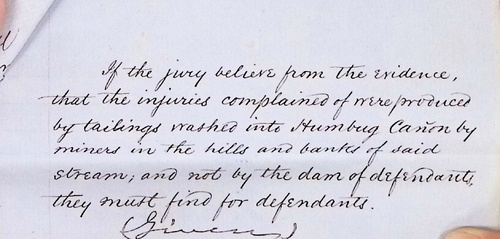 If the jury believe from the evidence,
that the injuries complained of were produced
by tailings washed into Humbug Cañon by
miners in the hills and banks of said
stream; and not by the dam of defendants,
they must find for defendants.
(Given)